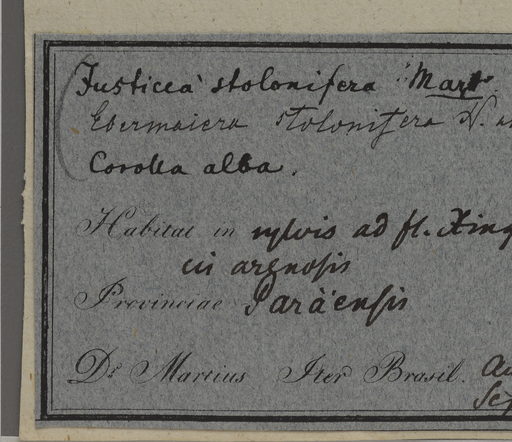 Justicea stolonifera Mart.
Ebermaiera stolonifera N.
Corolla alba.
Habitat in sylvis ad fl. Xing
arenosis
Provinciae Paràensis
Dr. Martius Iter Brasil.